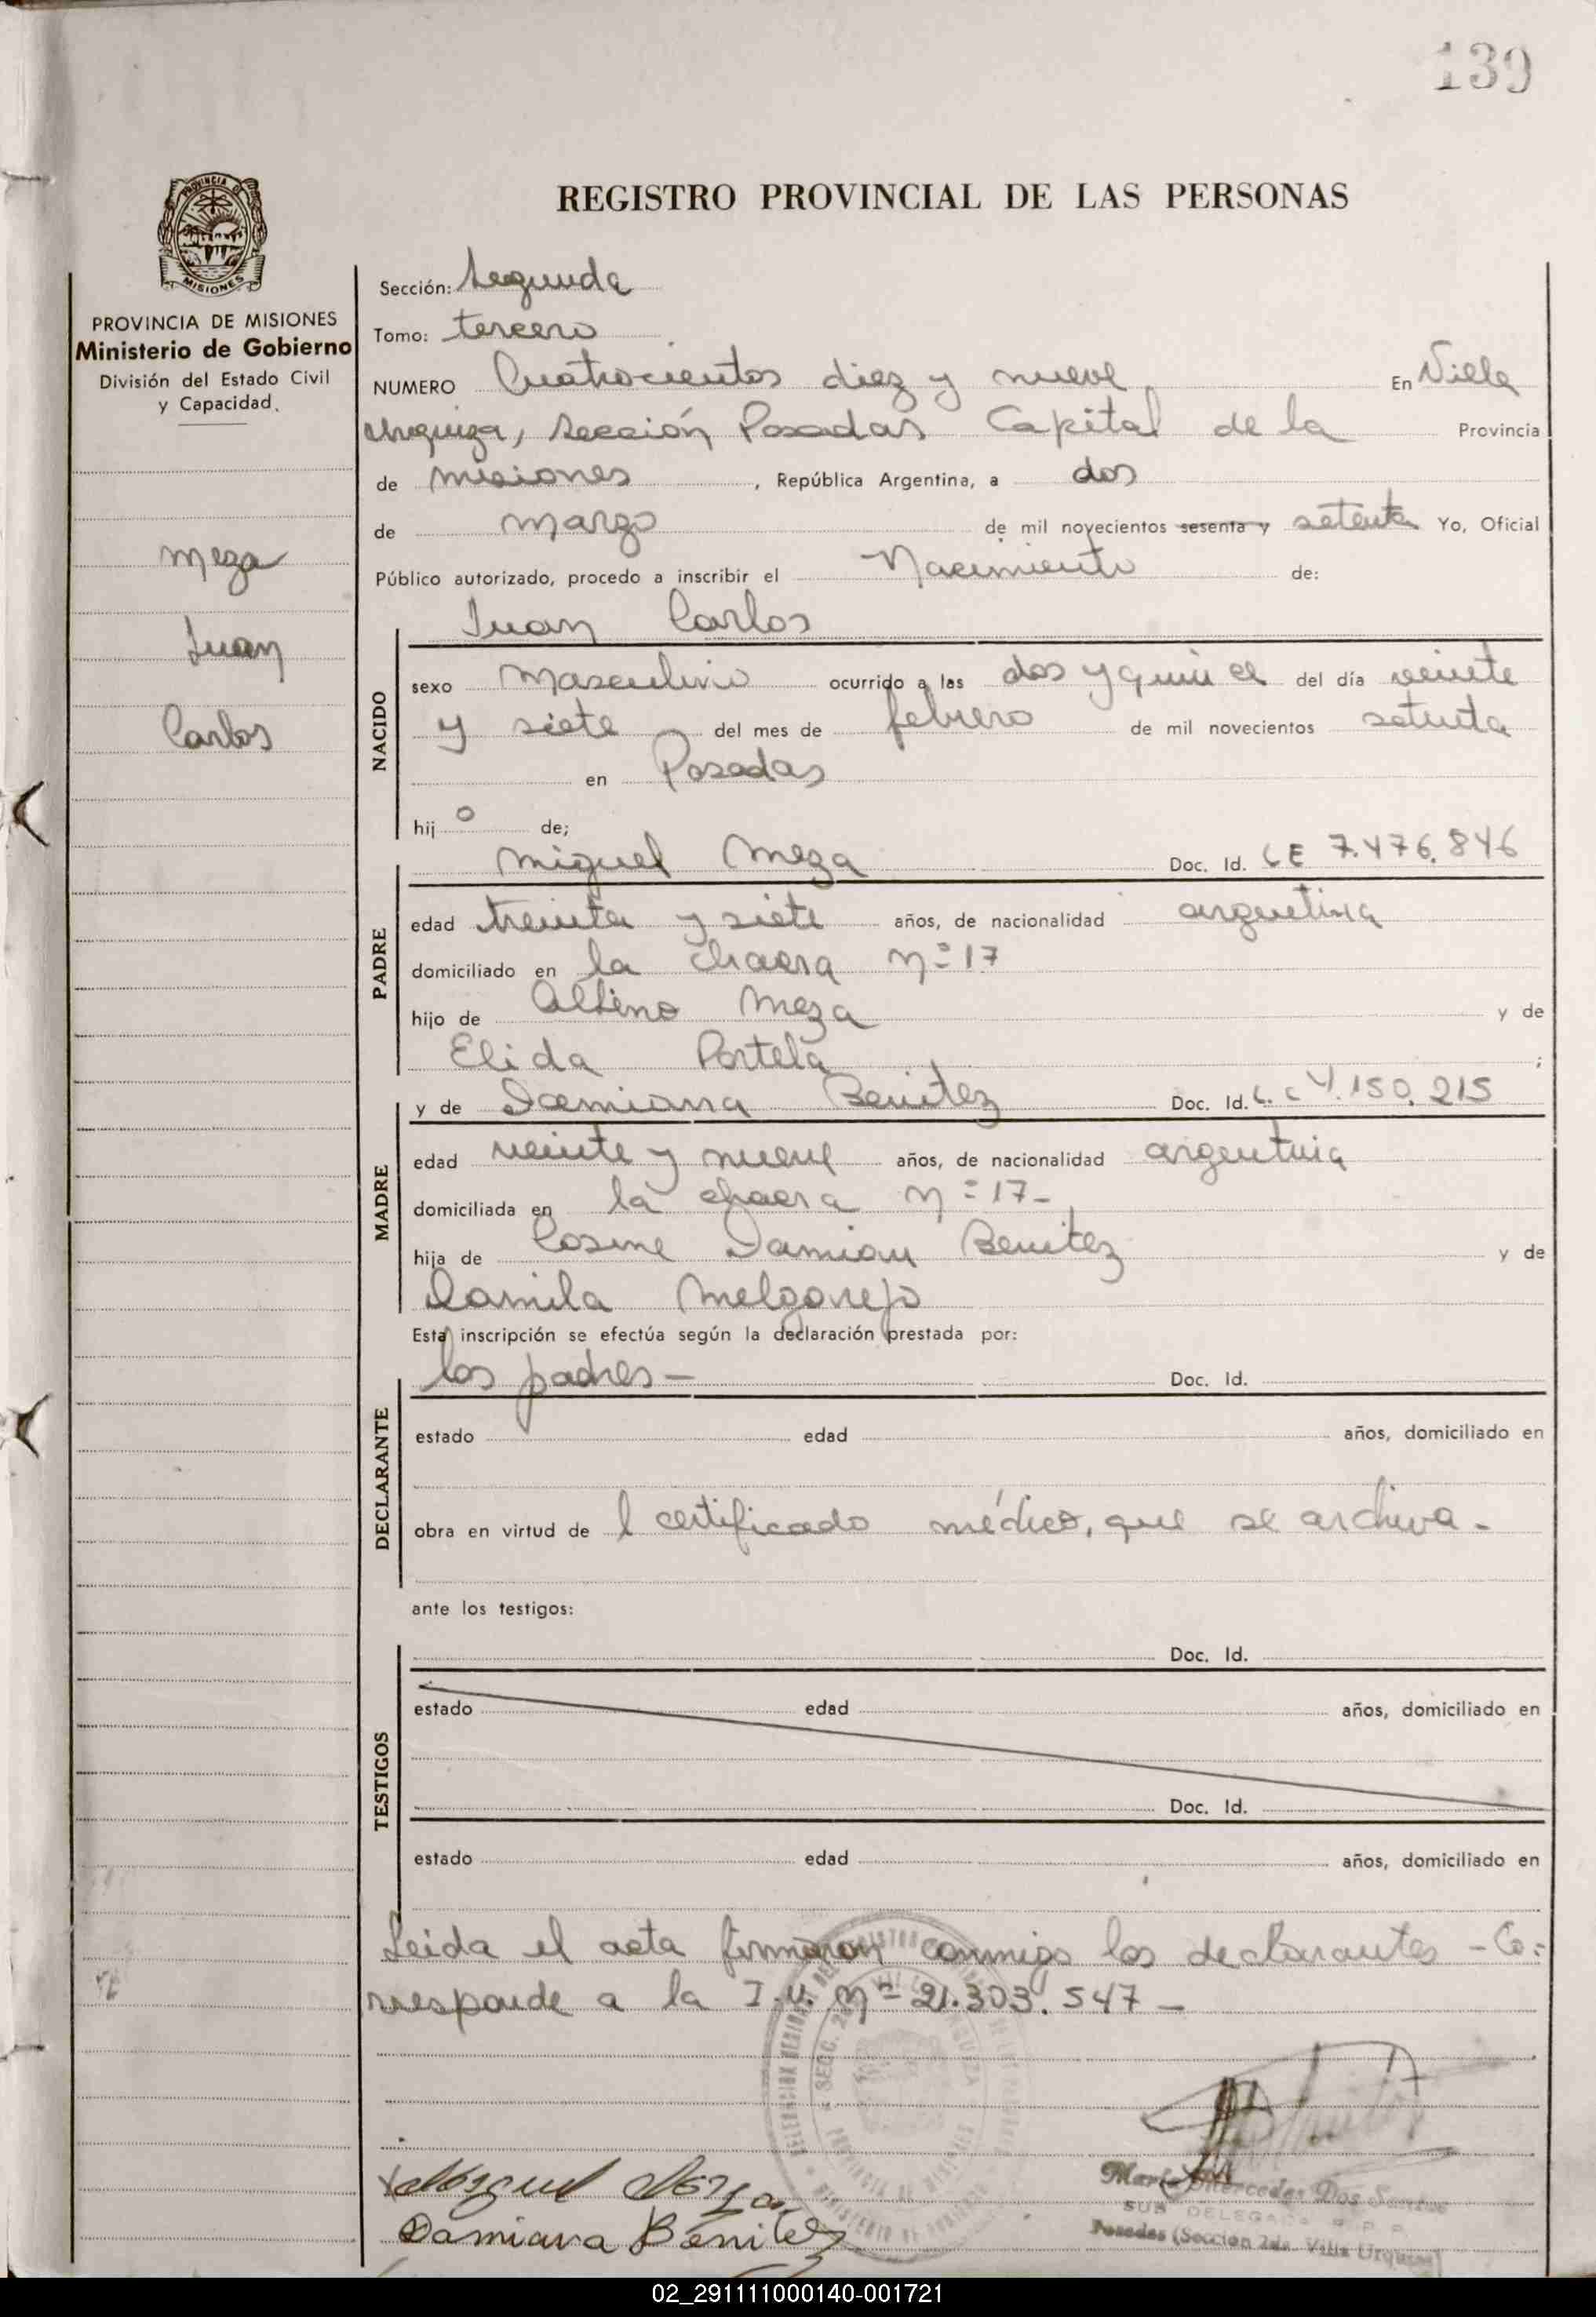 139
REGISTRO PROVINCIAL DE LAS PERSONAS
PROVINCIA DE MISIONES
Ministerio de Gobierno
División del Estado Civil
y Capacidad.
Meza
Juan
Carlos
Sección: Segunda
Tomo: tercero
NUMERO Cuatrocientos diez y nueve En Villa
Urquiza, Sección Posadas Capital de la Provincia
de Misiones, República Argentina, a dos
de marzo de mil novecientos sesenta y setenta Yo, Oficial
Público autorizado, procedo a inscribir el Nacimiento de:
Juan Carlos
NACIDO
sexo Masculino ocurrido a las dos y quince del día veinte
y siete del mes de febrero de mil novecientos setenta
en Posadas
hijo de;
Miguel Meza Doc. Id. LE 7.476.846
PADRE
edad treinta y siete años, de nacionalidad argentina
domiciliado en la chacra nº 17
hijo de Albino Meza y de
Elida Portela;
y de Damiana Benitez Doc. Id. L.C 4.150.215
MADRE
edad veinte y nueve años, de nacionalidad argentina
domiciliada en la chacra nº 17-
hija de Cosme Damian Benitez y de
Camila Melgarejo
Esta inscripción se efectúa según la declaración prestada por:
los padres- Doc. Id.
DECLARANTE
estado edad años, domiciliado en
obra en virtud de l certificado médico, que se archiva.-
ante los testigos:
Doc. Id.
TESTIGOS
estado edad años, domiciliado en
Doc. Id.
estado edad años, domiciliado en
Leida el acta firmaron conmigo los declarantes - Co=
rresponde a la I.U. nº 21.303.547-
Miguel Meza
Damiana Benitez
Maria Mercedes Dos Santos
SUB DELEGADA R. P. P.
Posadas (Seccion 2da. Villa Urquiza)
02_291111000140-001721